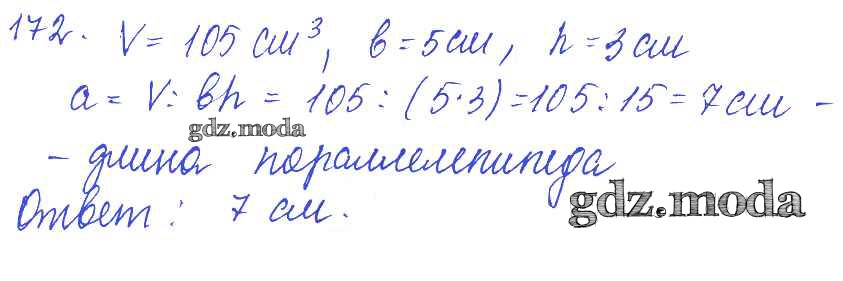 172. V = 105 см³, в = 5 см, h = 3 см
а = V : вh = 105 : (5·3) = 105 : 15 = 7 см –
gdz.moda
– длина пораллелепипеда
gdz.moda
Ответ: 7 см.